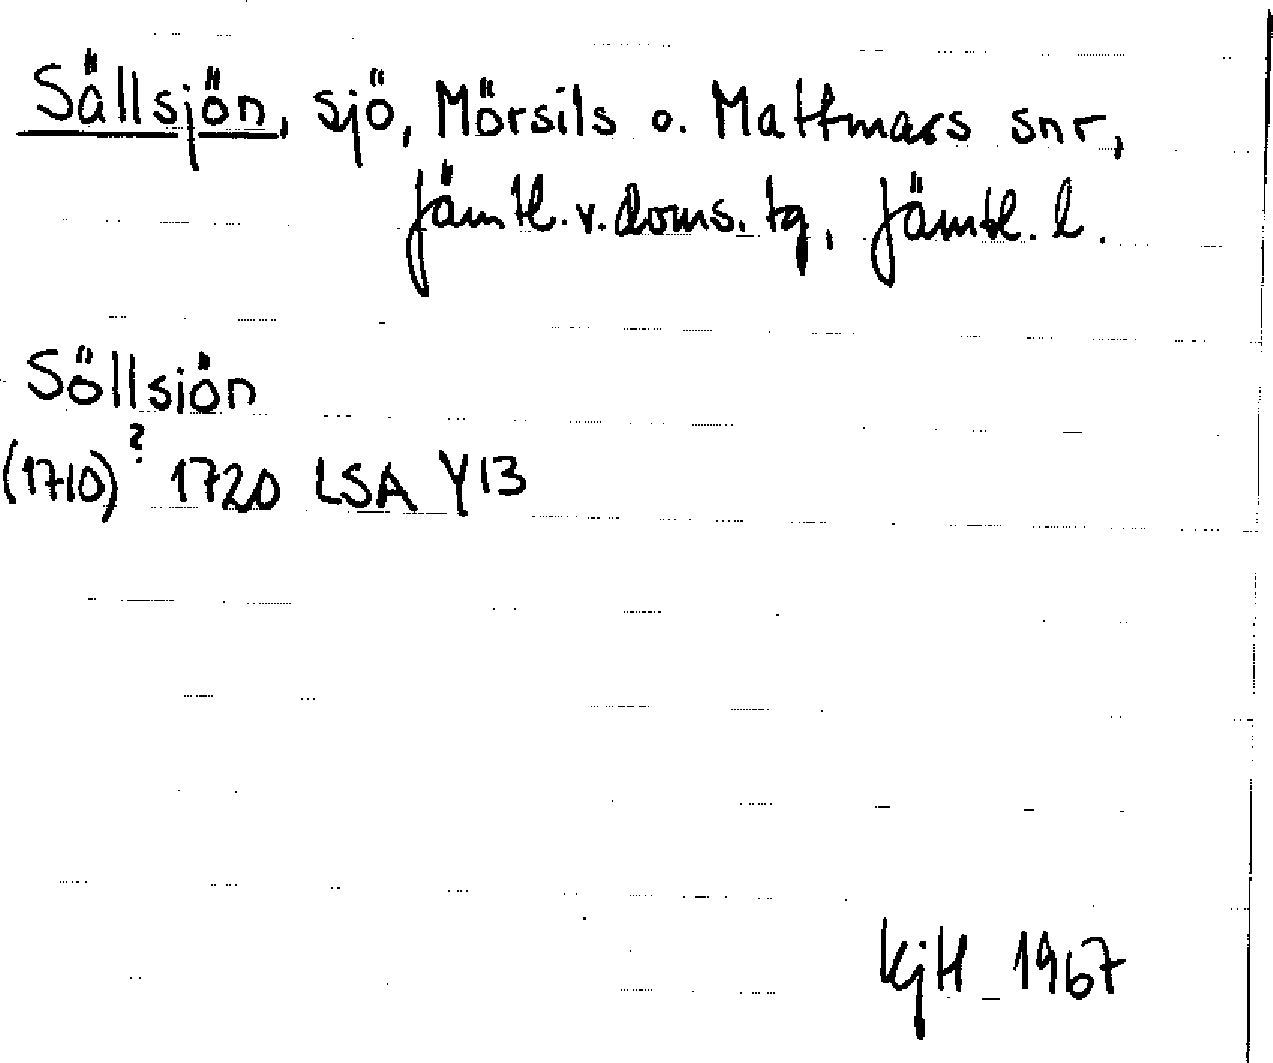 Sällsjön, sjö, Mörsils o. Mattmars snr,
Jämtl. v. doms. tg, Jämtl. l.
Söllsiön
(1710)? 1720 LSA Y13
KjH 1967